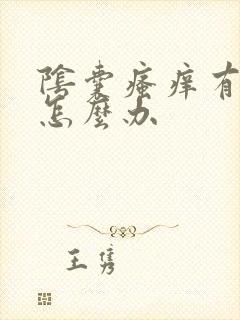 陰囊瘙痒有
怎麼办
王隽